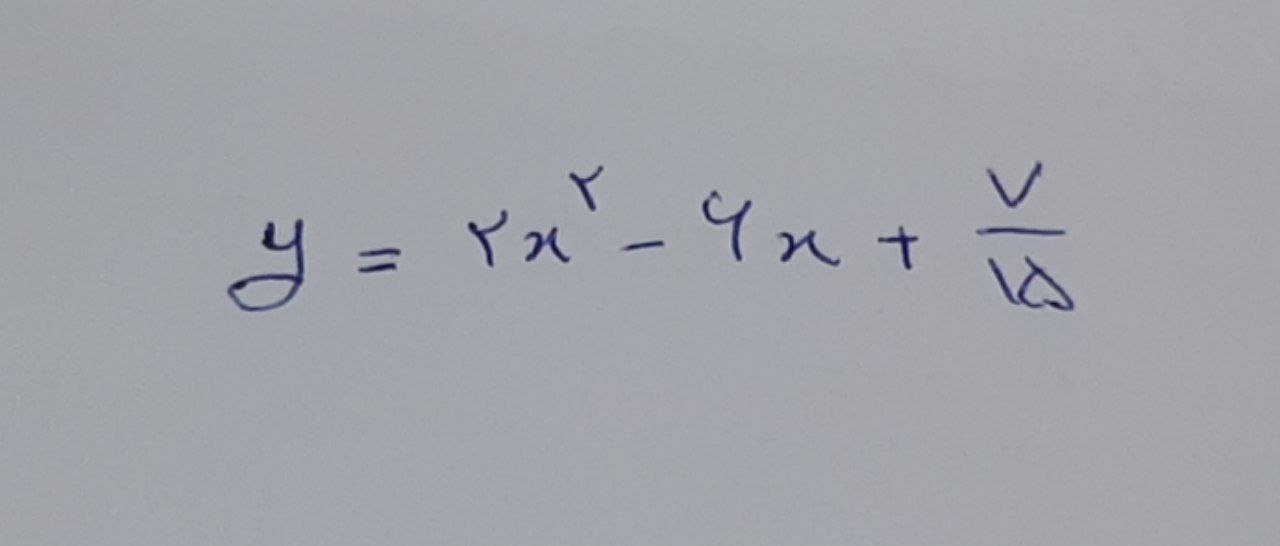 y = ۲x^۲ - ۶x + ۷/۱۵